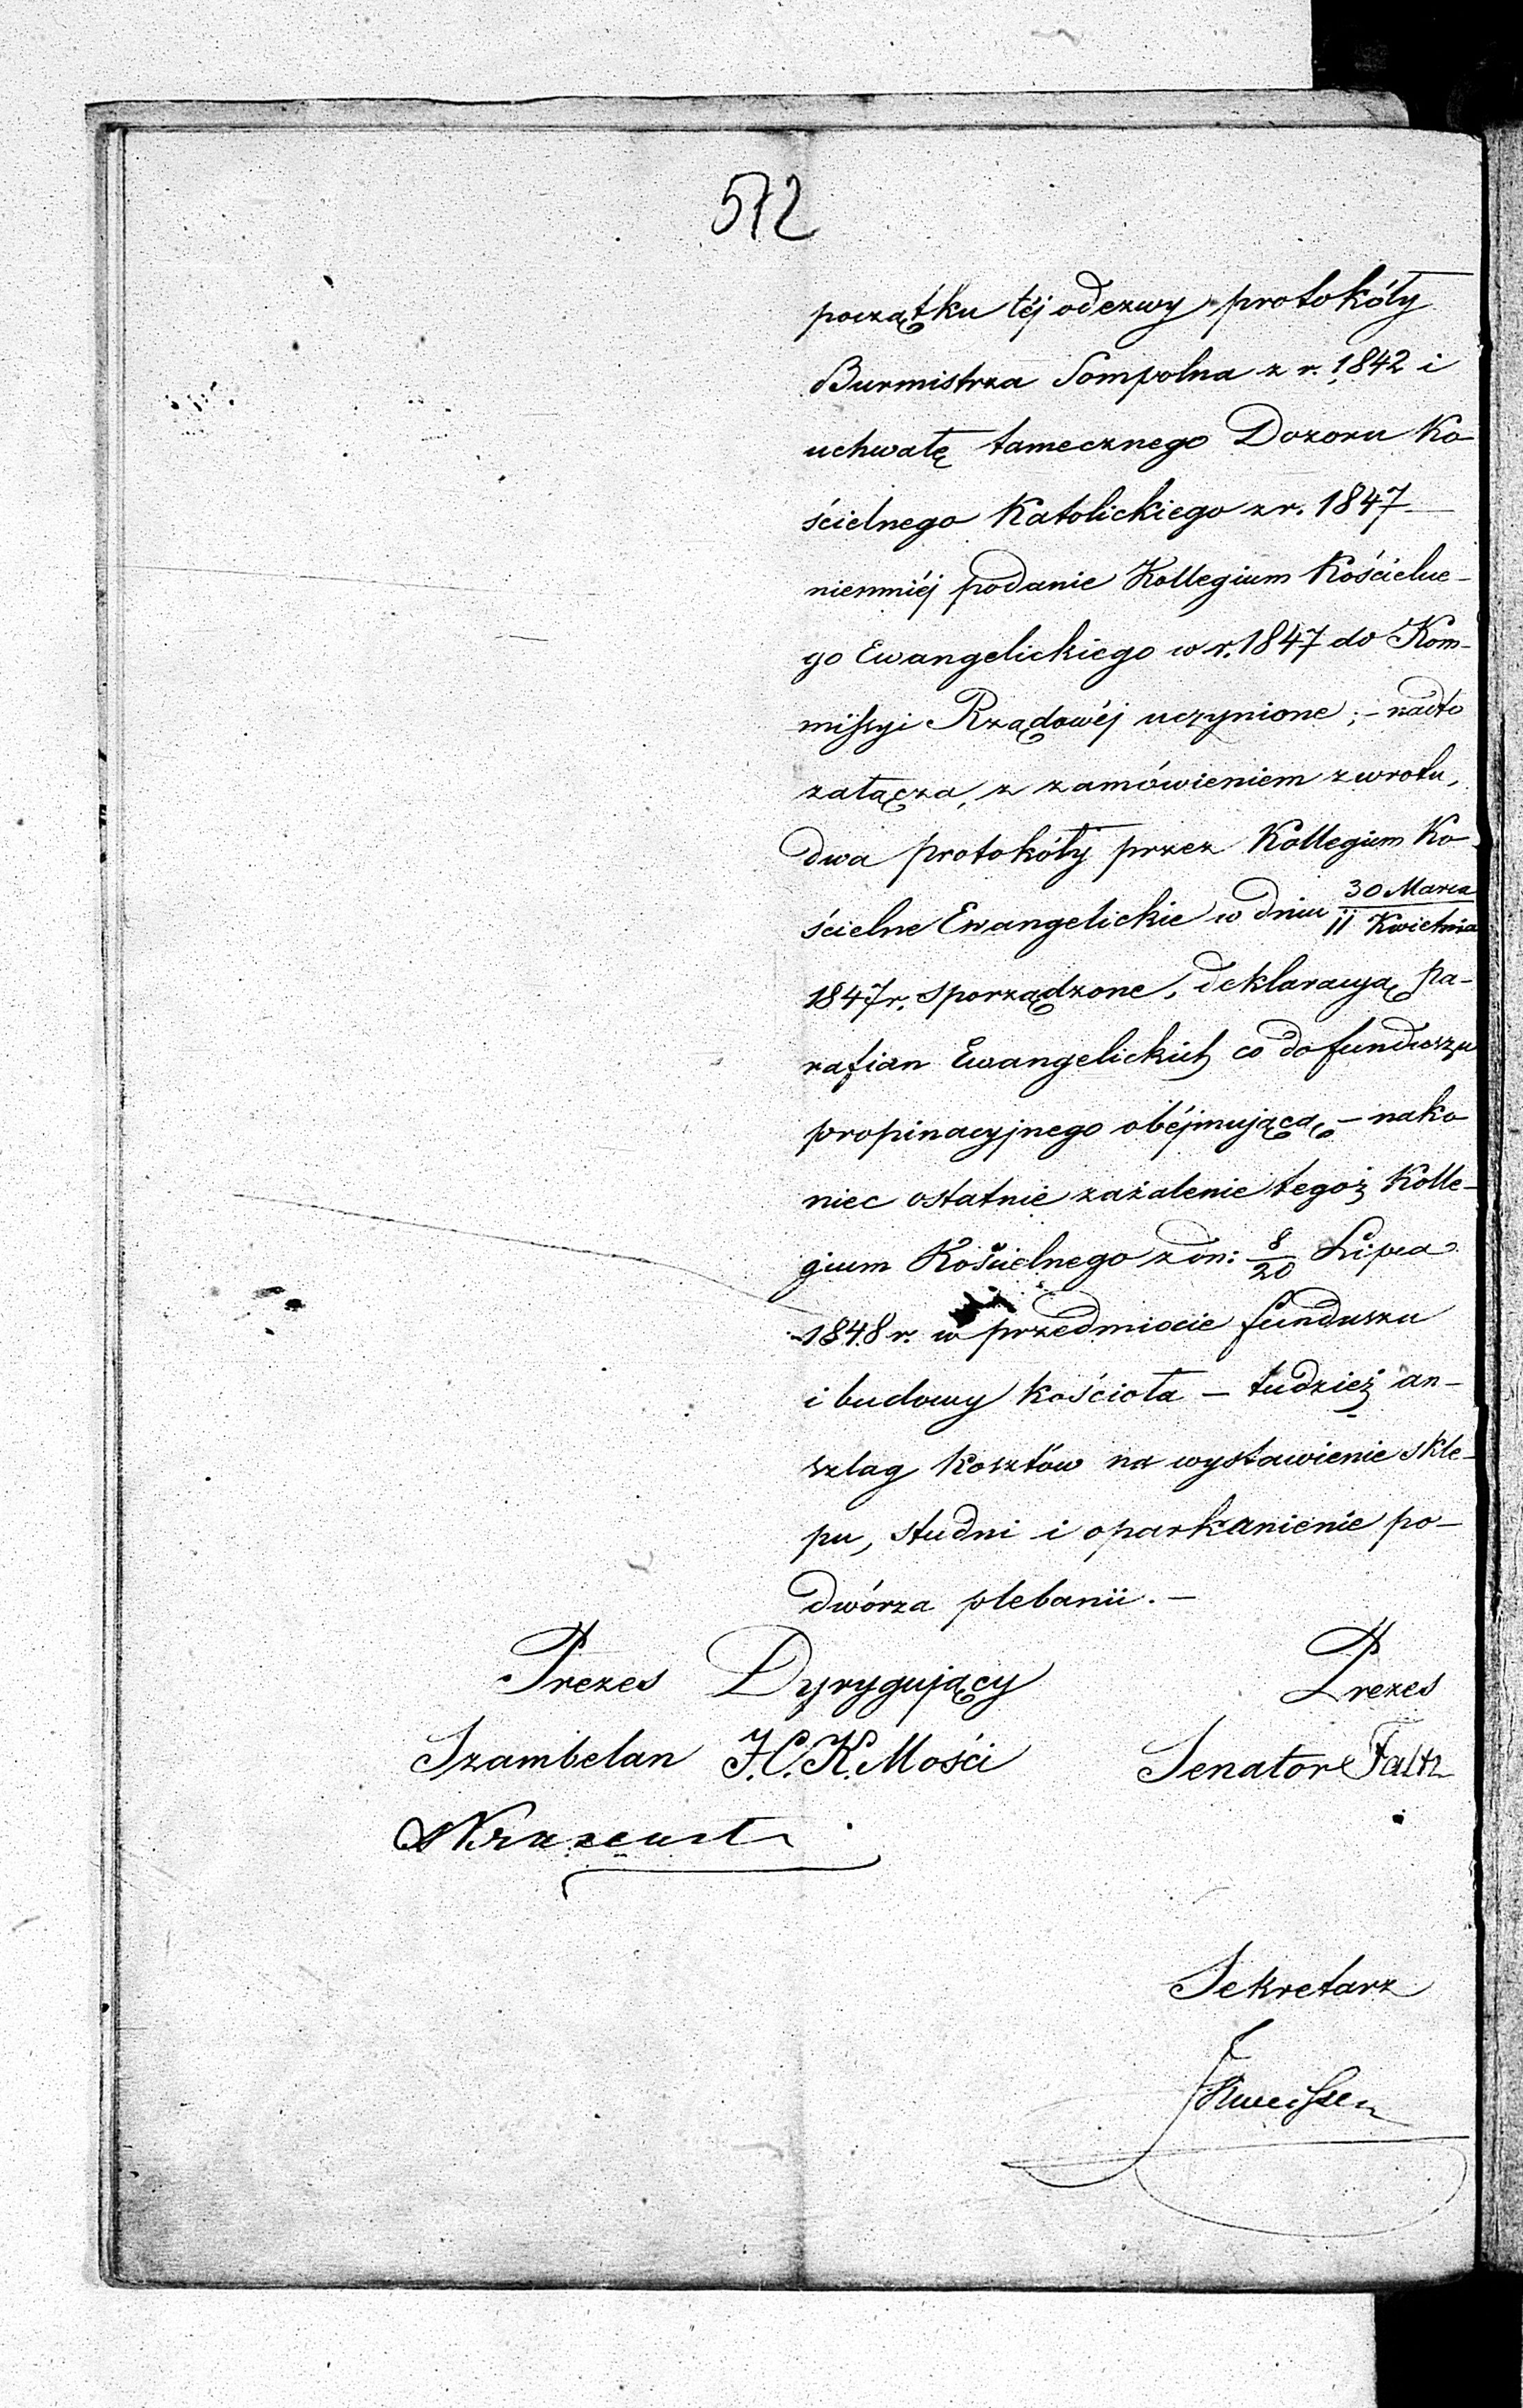 572
początku téj odezwy protokóły
Burmistrza Sompolna z r. 1842 i
uchwałę tamecznego Dozoru Ko-
ścielnego Katolickiego z r. 1847 —
niemniéj podanie Kollegium Kościelne-
go Ewangelickiego w r. 1847 do Kom-
missyi Rządowéj uczynione; – nadto
załącza, z zamówieniem zwrotu,
dwa protokóły przez Kollegium Ko-
ścielne Ewangelickie w dniu 30 Marca / 11 Kwietnia
1847 r. sporządzone, deklaracyą pa-
rafian Ewangelickich co do funduszu
propinacyjnego obéjmującą, – nako
niec ostatnie zażalenie tegoż Kolle-
gium Kościelnego z dn: 8/20 Lipca
1848 r. w przedmiocie funduszu
i budowy kościoła – tudzież an-
szlag kosztów na wystawienie skle-
pu, studni i oparkanienie po-
dwórza plebanii. –
Prezes Dyrygujący Prezes
Szambelan J.C.K. Mości Senator
Sekretarz